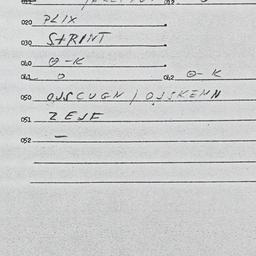 020 PLIX
030 STRINT
040 O-K
041 O 042 O-K
050 OJSCUGN / OJSKEMN
051 ZEJF
052 -